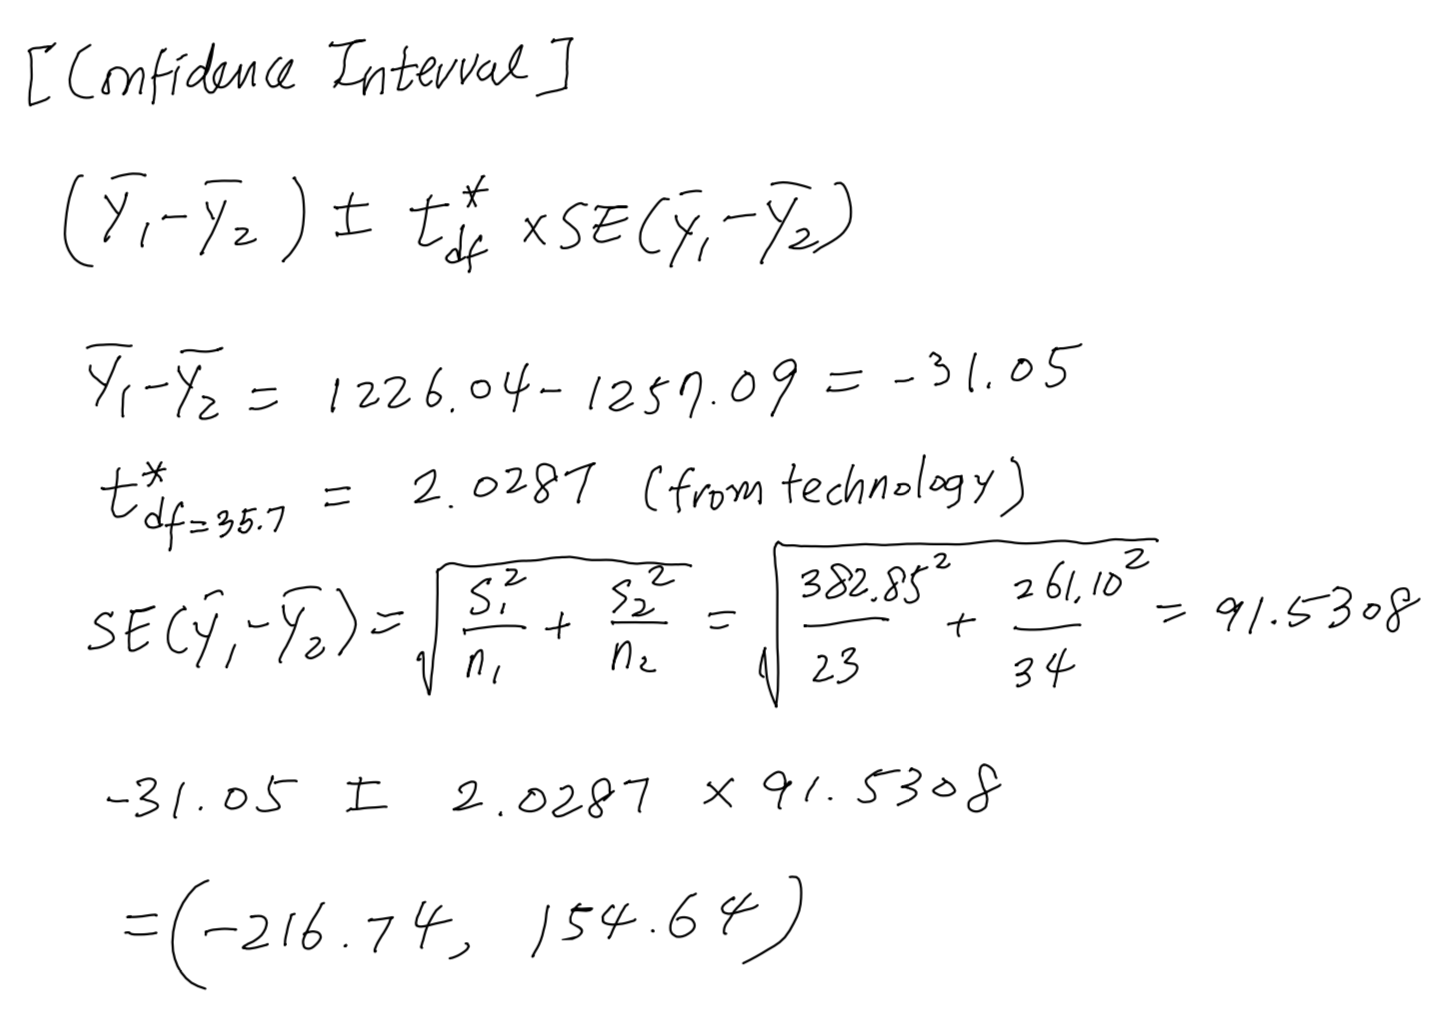 [Confidence Interval]
(ȳ₁-ȳ₂) ± t*df × SE(ȳ₁-ȳ₂)
ȳ₁-ȳ₂ = 1226.04 - 1257.09 = -31.05
t*df=35.7 = 2.0287 (from technology)
SE(ȳ₁-ȳ₂) = √(s₁²/n₁ + s₂²/n₂) = √(382.85²/23 + 261.10²/34) = 91.5308
-31.05 ± 2.0287 × 91.5308
= (-216.74, 154.64)